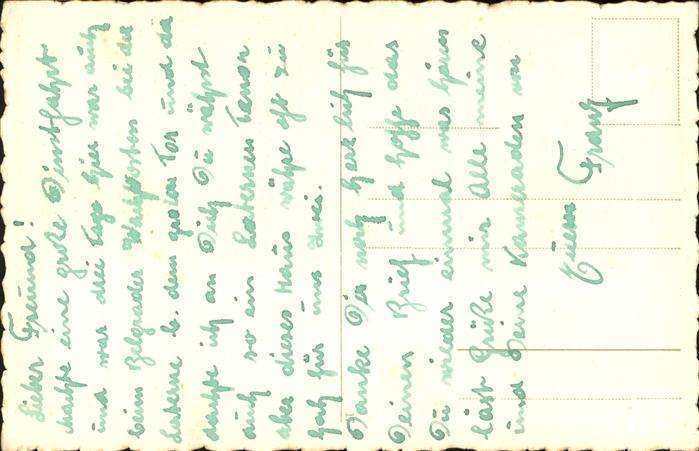 Lieber Freund!
machte eine große Dienstfahrt
und war drei Tage hier war auch
beim Belgrader Wachtposten bei der
Laterne b. dem großen Tor und da
dachte ich an Dich Du wähst
auch so ein Laternen
aber dieses Haus währe oft zu
hoch für uns zwei.
Danke Dir noch herzlich für
Deinen Brief und hoffe das
Du wieder einmal was hören
läst Grüße mir Alle meine
und Deine Kameraden von
Euern Franz